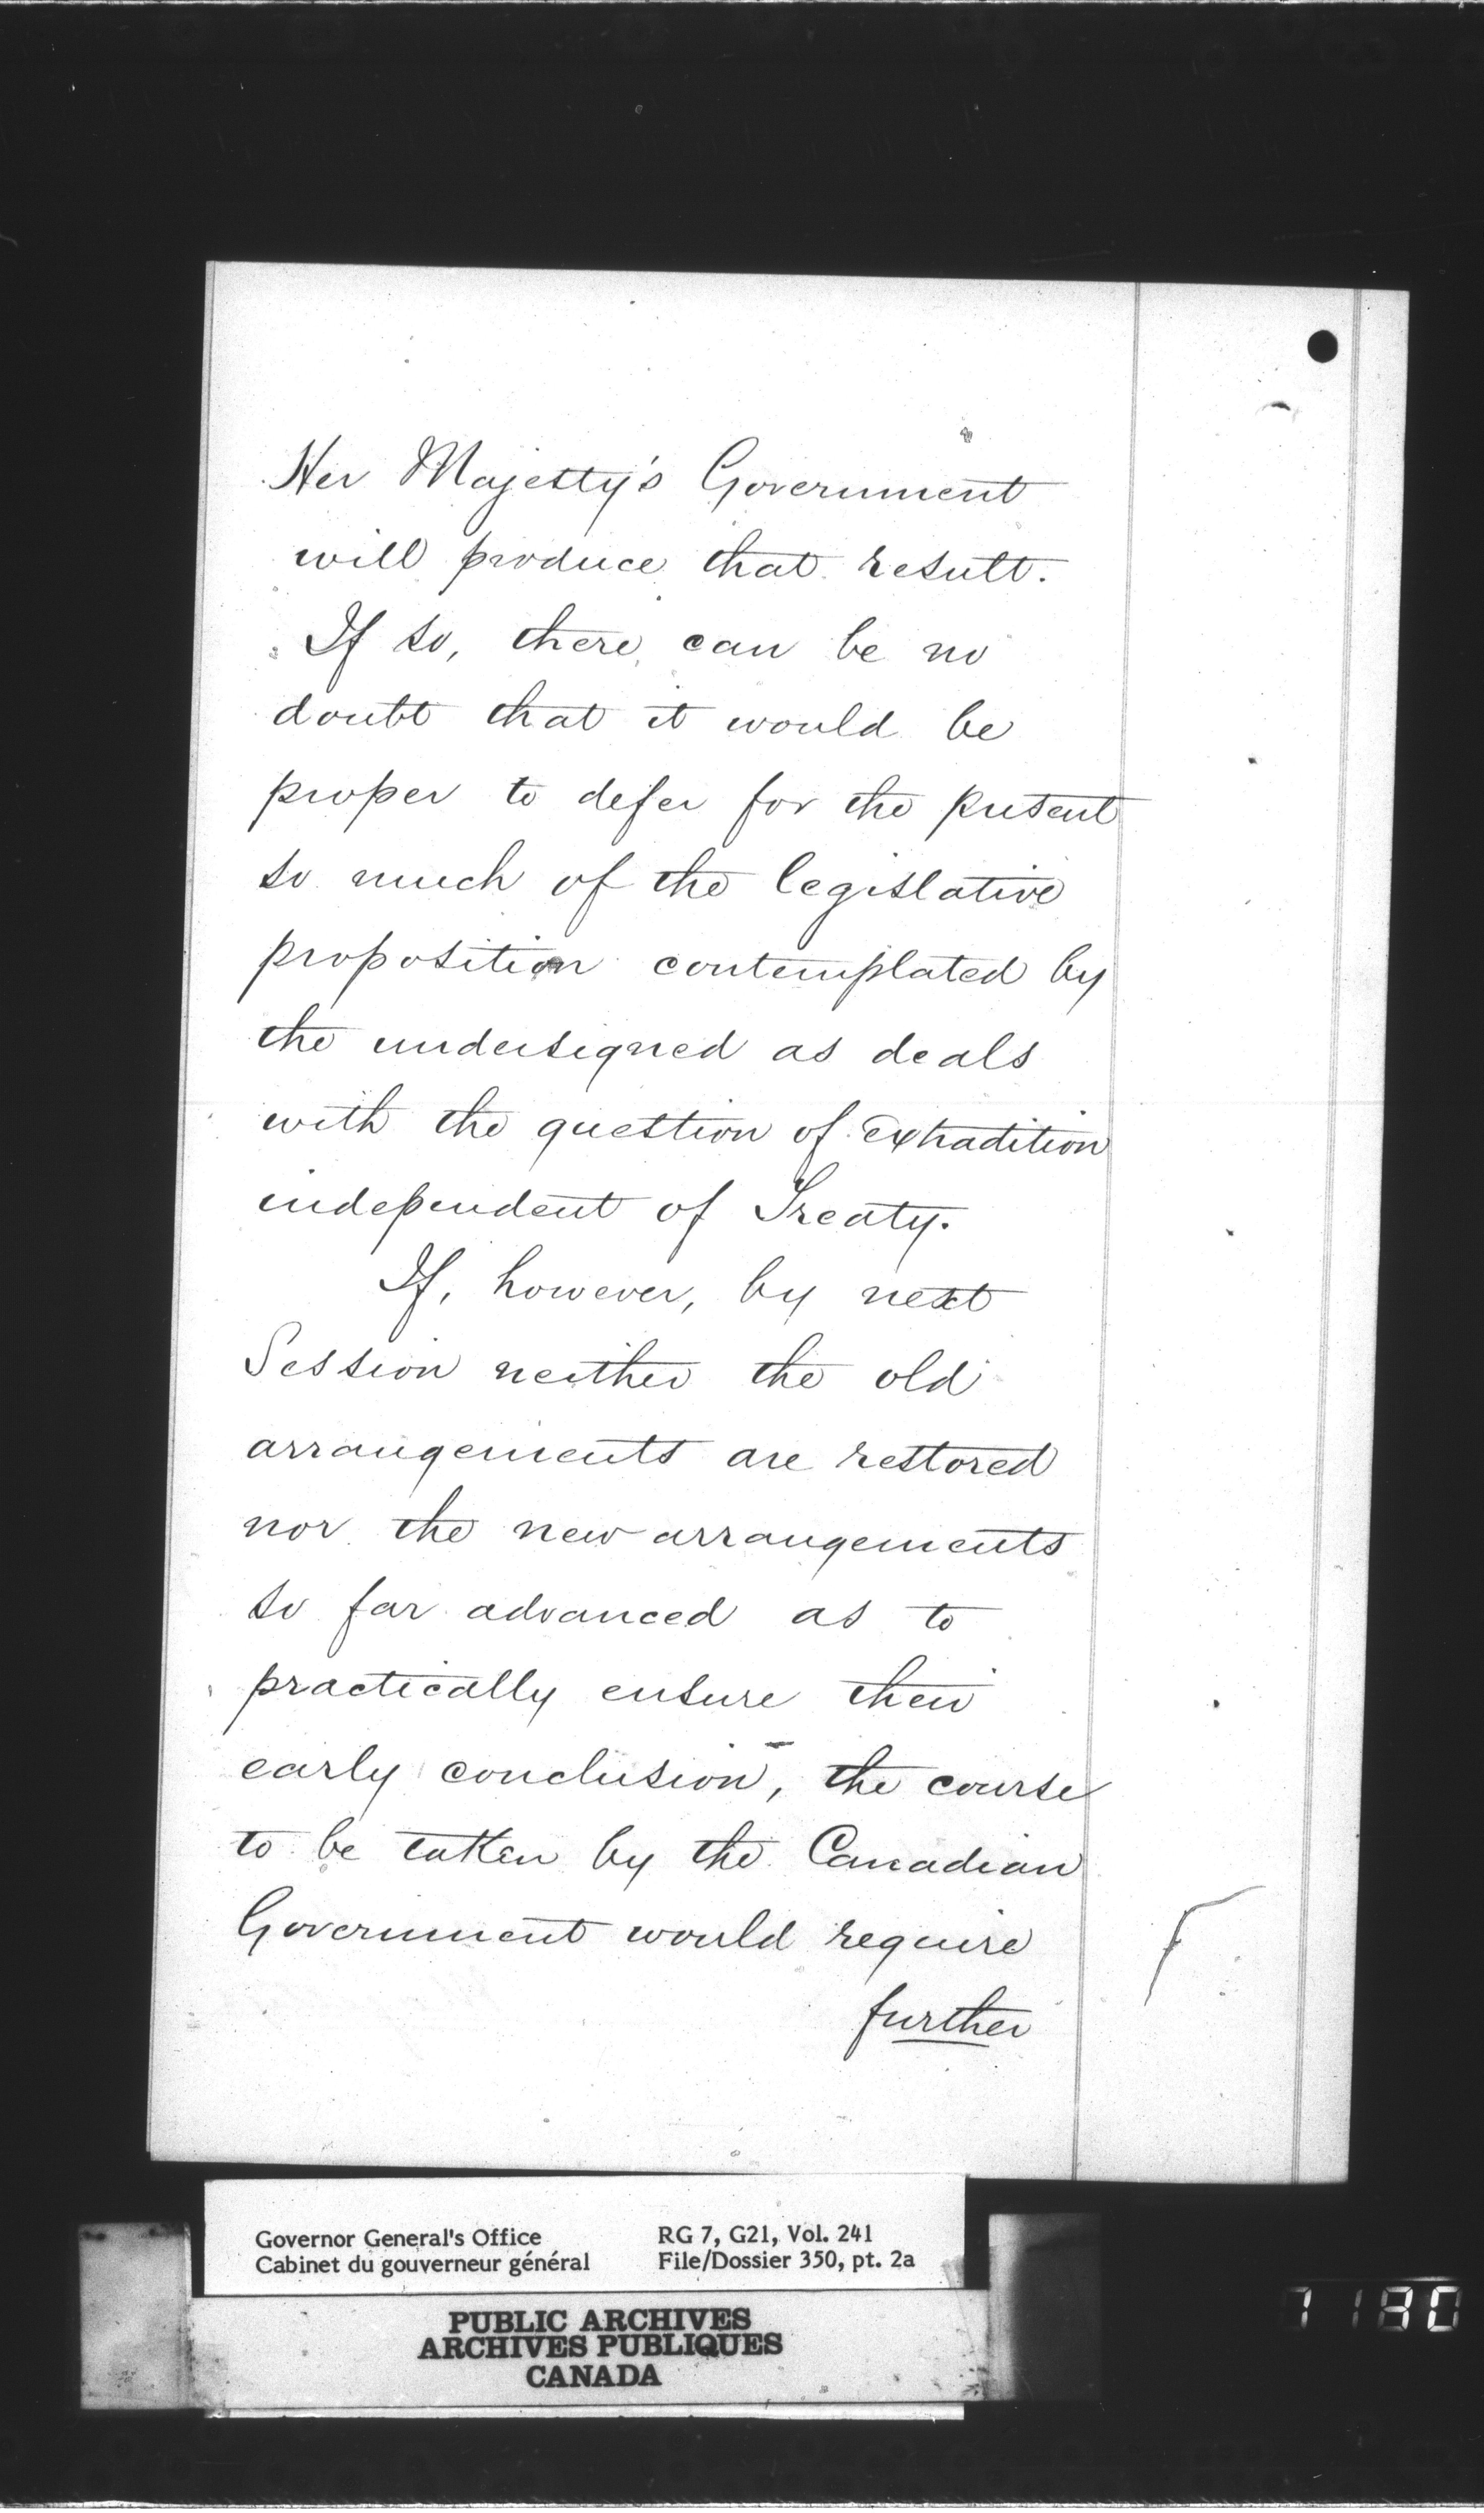 Her Majesty's Government
will produce that result.
If so, there can be no
doubt that it would be
proper to defer for the present
so much of the legislative
proposition contemplated by
the undersigned as deals
with the question of Extradition
independent of Treaty.
If, however, by next
Session neither the old
arrangements are restored
nor the new arrangements
so far advanced as to
practically ensure their
early conclusion, the course
to be taken by the Canadian
Government would require
further
Governor General's Office
Cabinet du gouverneur général
RG 7, G21, Vol. 241
File/Dossier 350, pt. 2a
PUBLIC ARCHIVES
ARCHIVES PUBLIQUES
CANADA
7180